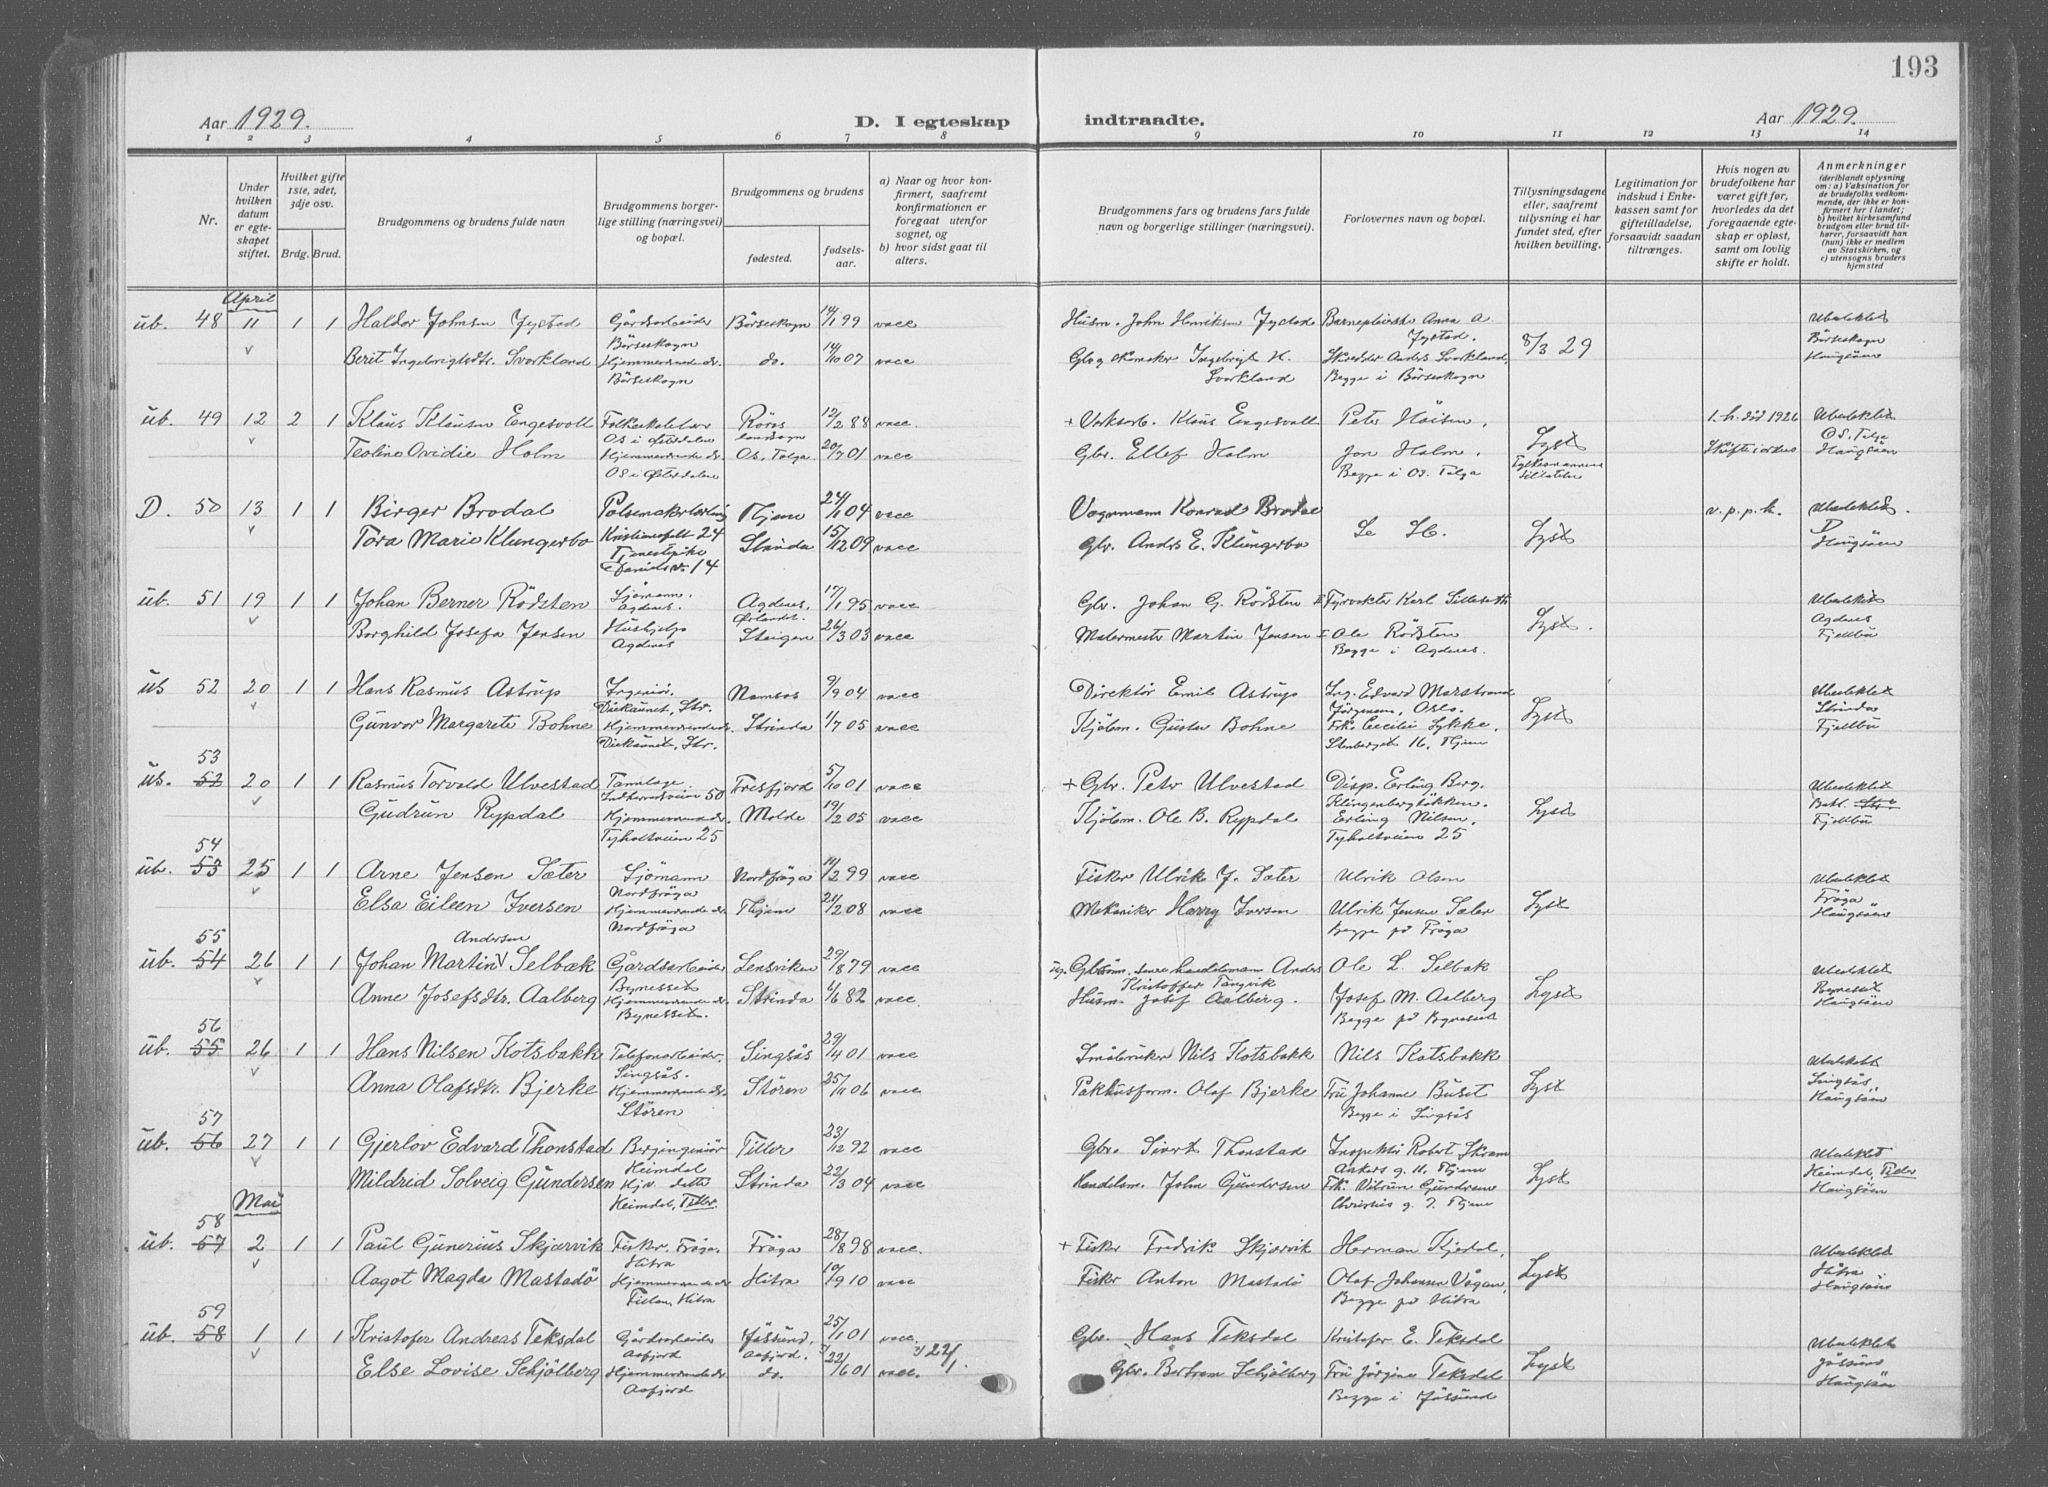 193
Aar 1929.
D. I egteskap indtraadte.
Aar 1929.
1 2 3 4 5 6 7 8 9 10 11 12 13 14
Nr.
Under hvilken datum er egteskapet stiftet.
Hvilket gifte 1ste, 2det, 3dje osv.
Brdg. Brud.
Brudgommens og brudens fulde navn
Brudgommens borgerlige stilling (næringsvei) og bopæl.
Brudgommens og brudens
fødested.
fødselsaar.
a) Naar og hvor konfirmert, saafremt konfirmationen er foregaat utenfor sognet, og
b) hvor sidst gaat til alters.
Brudgommens fars og brudens fars fulde navn og borgerlige stillinger (næringsvei).
Forlovernes navn og bopæl.
Tillysningsdagene eller, saafremt tillysning ei har fundet sted, efter hvilken bevilling.
Legitimation for indskud i Enkekassen samt for giftetilladelse, forsaavidt saadan tiltrænges.
Hvis nogen av brudefolkene har været gift før, hvorledes da det foregaaende egteskap er opløst, samt om lovlig skifte er holdt.
Anmerkninger
(deriblandt oplysning om: a) Vaksination for de brudefolks vedkommende, der ikke er konfirmert her i landet; b) hvilket kirkesamfund brudgom eller brud tilhører, forsaavidt han (hun) ikke er medlem av Statskirken, og c) utensogns bruders hjemsted
April
üb. 48 11 1 1 Haldor Johnsen Jystad Gårdsarbeider Börseskogn 14/1 99 vacc Husm. John Henriksen Jystad Barnepleierske Anna A. Ubeslektet
Börseskogn Jystad. 8/3 29 Börseskogn
Berit Ingebrigtsdtr. Svorkland Hjemmeværende ds. do. 14/10 07 vacc Gbr og skomaker Ingebrigt H. Skredder Anders Svorkland, Haugsåen
Börseskogn Svorkland Begge i Börseskogn
üb. 49 12 2 1 Klaus Klausen Engesvoll Folkeskolelærer Röros 12/2 88 vacc. + Verksarb. Klaus Engesvoll Peter Höisen, 1. h. död 1926 Ubeslektet
Os i Østerdalen landsogn Os, Tolga
Teoline Ovidie Holm Hjemmeværende ds. Os, Tolga. 20/7 01 vacc Gbr. Ellef Holm Jon Holm. Lyst Skifte i orden Haugsåen
Os i Østerdalen Begge i Os, Tolga Fylkesmannens tillatelse
D. 50 13 1 1 Birger Brodal Pölsemakerlærling Thjem 24/11 04 vacc Vognmann Konrad Brodal v. p. p. k. Ubeslektet.
Kristiansfelt 24 D
Tora Marie Klungerbo Tjenestepike Strinda 15/12 09 vacc Gbr. Anders E. Klungerbo Se St. Lyst Haugsåen
Danielsv. 14
üb. 51 19 1 1 Johan Berner Rödsten Sjömann. Agdenes, 17/1 95 vacc Gbr. Johan G. Rödsten II Fyrvokter Karl Sillesoth Ubeslektet
Agdenes. Ørlandet. Agdenes
Borghild Josefa Jensen Hushjelp Steigen 26/3 03 vacc Malermester Martin Jensen I Ole Rödsten Lyst. Fjellbu
Agdenes Begge i Agdenes.
üb 52 20 1 1 Hans Rasmus Astrup Ingeniör. Namsos 9/9 04 vacc Direktör Emil Astrup Ing. Edvard Marstrand Ubeslektet
Dickaunet, Str. Jörgensen, Oslo. Strinda
Gunvor Margarete Bohne Hjemmeværende ds. Strinda 1/7 05 vacc Kjöbm. Gustav Bohne Frk. Cecilie Lykke, Lyst Fjellbu
Dickaunet, Str. Stenberget 16, Thjem
53
üb. 52 20 1 1 Rasmus Torvald Ulvestad Tannlæge. Tresfjord 5/10 01 vacc + Gbr. Peter Ulvestad Disp. Erling Berg. Ubeslektet
Indherredsveien 50 Klingenbergbakken. Bakl.
Gudrun Rypdal Hjemmeværende ds. Molde 19/2 05 vacc Kjöbm. Ole B. Rypdal Erling Nilsen, Lyst Fjellbu
Tyholtveien 25 Tyholtveien 25
54
üb. 53 25 1 1 Arne Jensen Sæter Sjömann Nordfröya 14/2 99 vacc Fisker Ulrik J. Sæter Ulrik Olsen Ubeslektet
Nordfröya Fröya
Elsa Eileen Iversen Hjemmeværende ds. Thjem 21/2 08 vacc Mekaniker Harry Iversen Ulrik Jensen Sæter Lyst Haugsåen
Nordfröya Begge på Fröya
55 Andersen
üb. 54 26 1 1 Johan Martin V Selbæk Gårdsarbeider Lensviken 29/8 79 vacc ug. Gbsönn. senere handelsmann Anders Ole L. Selbæk Ubeslektet
Bynesset Kristoffer Tangvik Bynesset
Anne Josefsdtr. Aalberg Hjemmeværende ds. Strinda 4/6 82 vacc. Husm. Josef Aalberg. Josef M. Aalberg Lyst Haugsåen
Bynesset. Begge på Bynesset
56
üb. 55 26 1 1 Hans Nilsen Kotsbakk Telefonarbeider, Singsås 29/4 01 vacc Småbruker Nils Kotsbakk Nils Kotsbakk Ubeslektet
Singsås. Singsås
Anna Olafsdtr. Bjerke Hjemmeværende ds. Stören 25/11 06 vacc Pakkhusform. Olaf Bjerke Fru Johanne Buset Lyst Haugsåen
Stören Begge i Singsås
57
üb. 56 27 1 1 Gjerlov Edvard Thonstad Bergingeniör Tiller 23/12 92 vacc Gbr. Sivert Thonstad Inspektör Robert Skram Ubeslektet
Heimdal Ankers g. 11. Thjem Heimdal, Tiller
Mildrid Solveig Gundersen Hjv. datter Strinda 22/3 04 vacc Handelsm. John Gundersen Frk. Gundersen Lyst Haugsåen
Heimdal, Tiller g. 7. Thjem
Mai
58
üb. 57 2 1 1 Paul Gunerius Skjærvik Fisker. Fröya. Fröya 28/8 98 vacc. + Fisker Fredrik Skjærvik Herman Kjedal, Ubeslektet
Hitra Hitra
Aagot Magda Mastadö Hjemmeværende ds Hitra 10/9 10 vacc Fisker Anton Mastadö Olaf Johansen Vågan, Lyst Haugsåen
Fillan, Hitra Begge på Hitra
59
üb. 58 1 1 1 Kristofer Andreas Teksdal Gårdsarbeider Jössund, 25/11 01 vacc. Gbr. Hans Teksdal Kristofer E. Teksdal Ubeslektet
Aafjord Aafjord. Jössund
Else Lovise Schjölberg Hjemmeværende ds do. 22/6 01 vacc. 22/1. Gbr. Bertram Schjölberg Fru Jörgine Teksdal Lyst Haugsåen
Aafjord Begge i Jössund